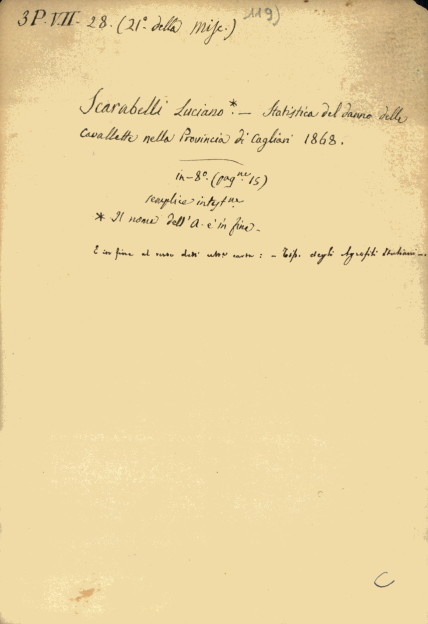 3P.VII. 28. (21º della Misc.) 119)
Scarabelli Luciano*. — Statistica del danno delle
cavallette nella Provincia di Cagliari 1868.
in-8º. (pag.ne 15)
semplice intest.ne
* Il nome dell'A. è in fine.
E in fine al verso dell' carta: - Tip. degli Agrofili Italiani -.
C